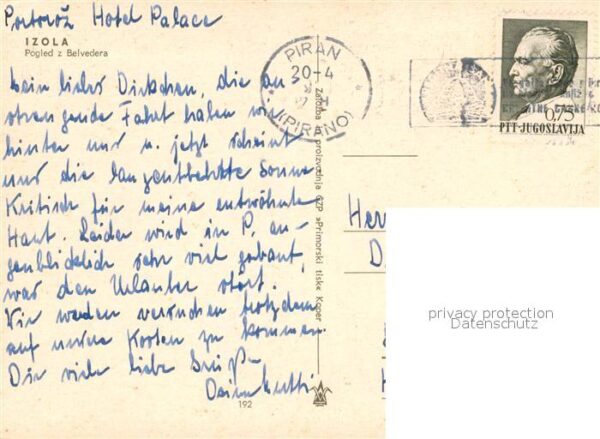 Portorož Hotel Palace
IZOLA
Pogled z Belvedera
Mein liebes Dirkchen, die an
strengende Fahrt haben wir
hinter uns u. jetzt scheint
uns die langentbehrte Sonne
Kritisch für meine entwöhnte
Haut. Leider wird in P. au-
genblicklich sehr viel gebaut,
was den Urlauber stört.
Wir werden versuchen trotzdem
auf unsre Kosten zu kommen.
Dir viele liebe Grüße
Deine Mutti
192
Založba in proizvodnja ČZP »Primorski tisk« Koper
PIRAN
20-4
(PIRANO)
0,75
PTT-JUGOSLAVIJA
Her
D
privacy protection
Datenschutz